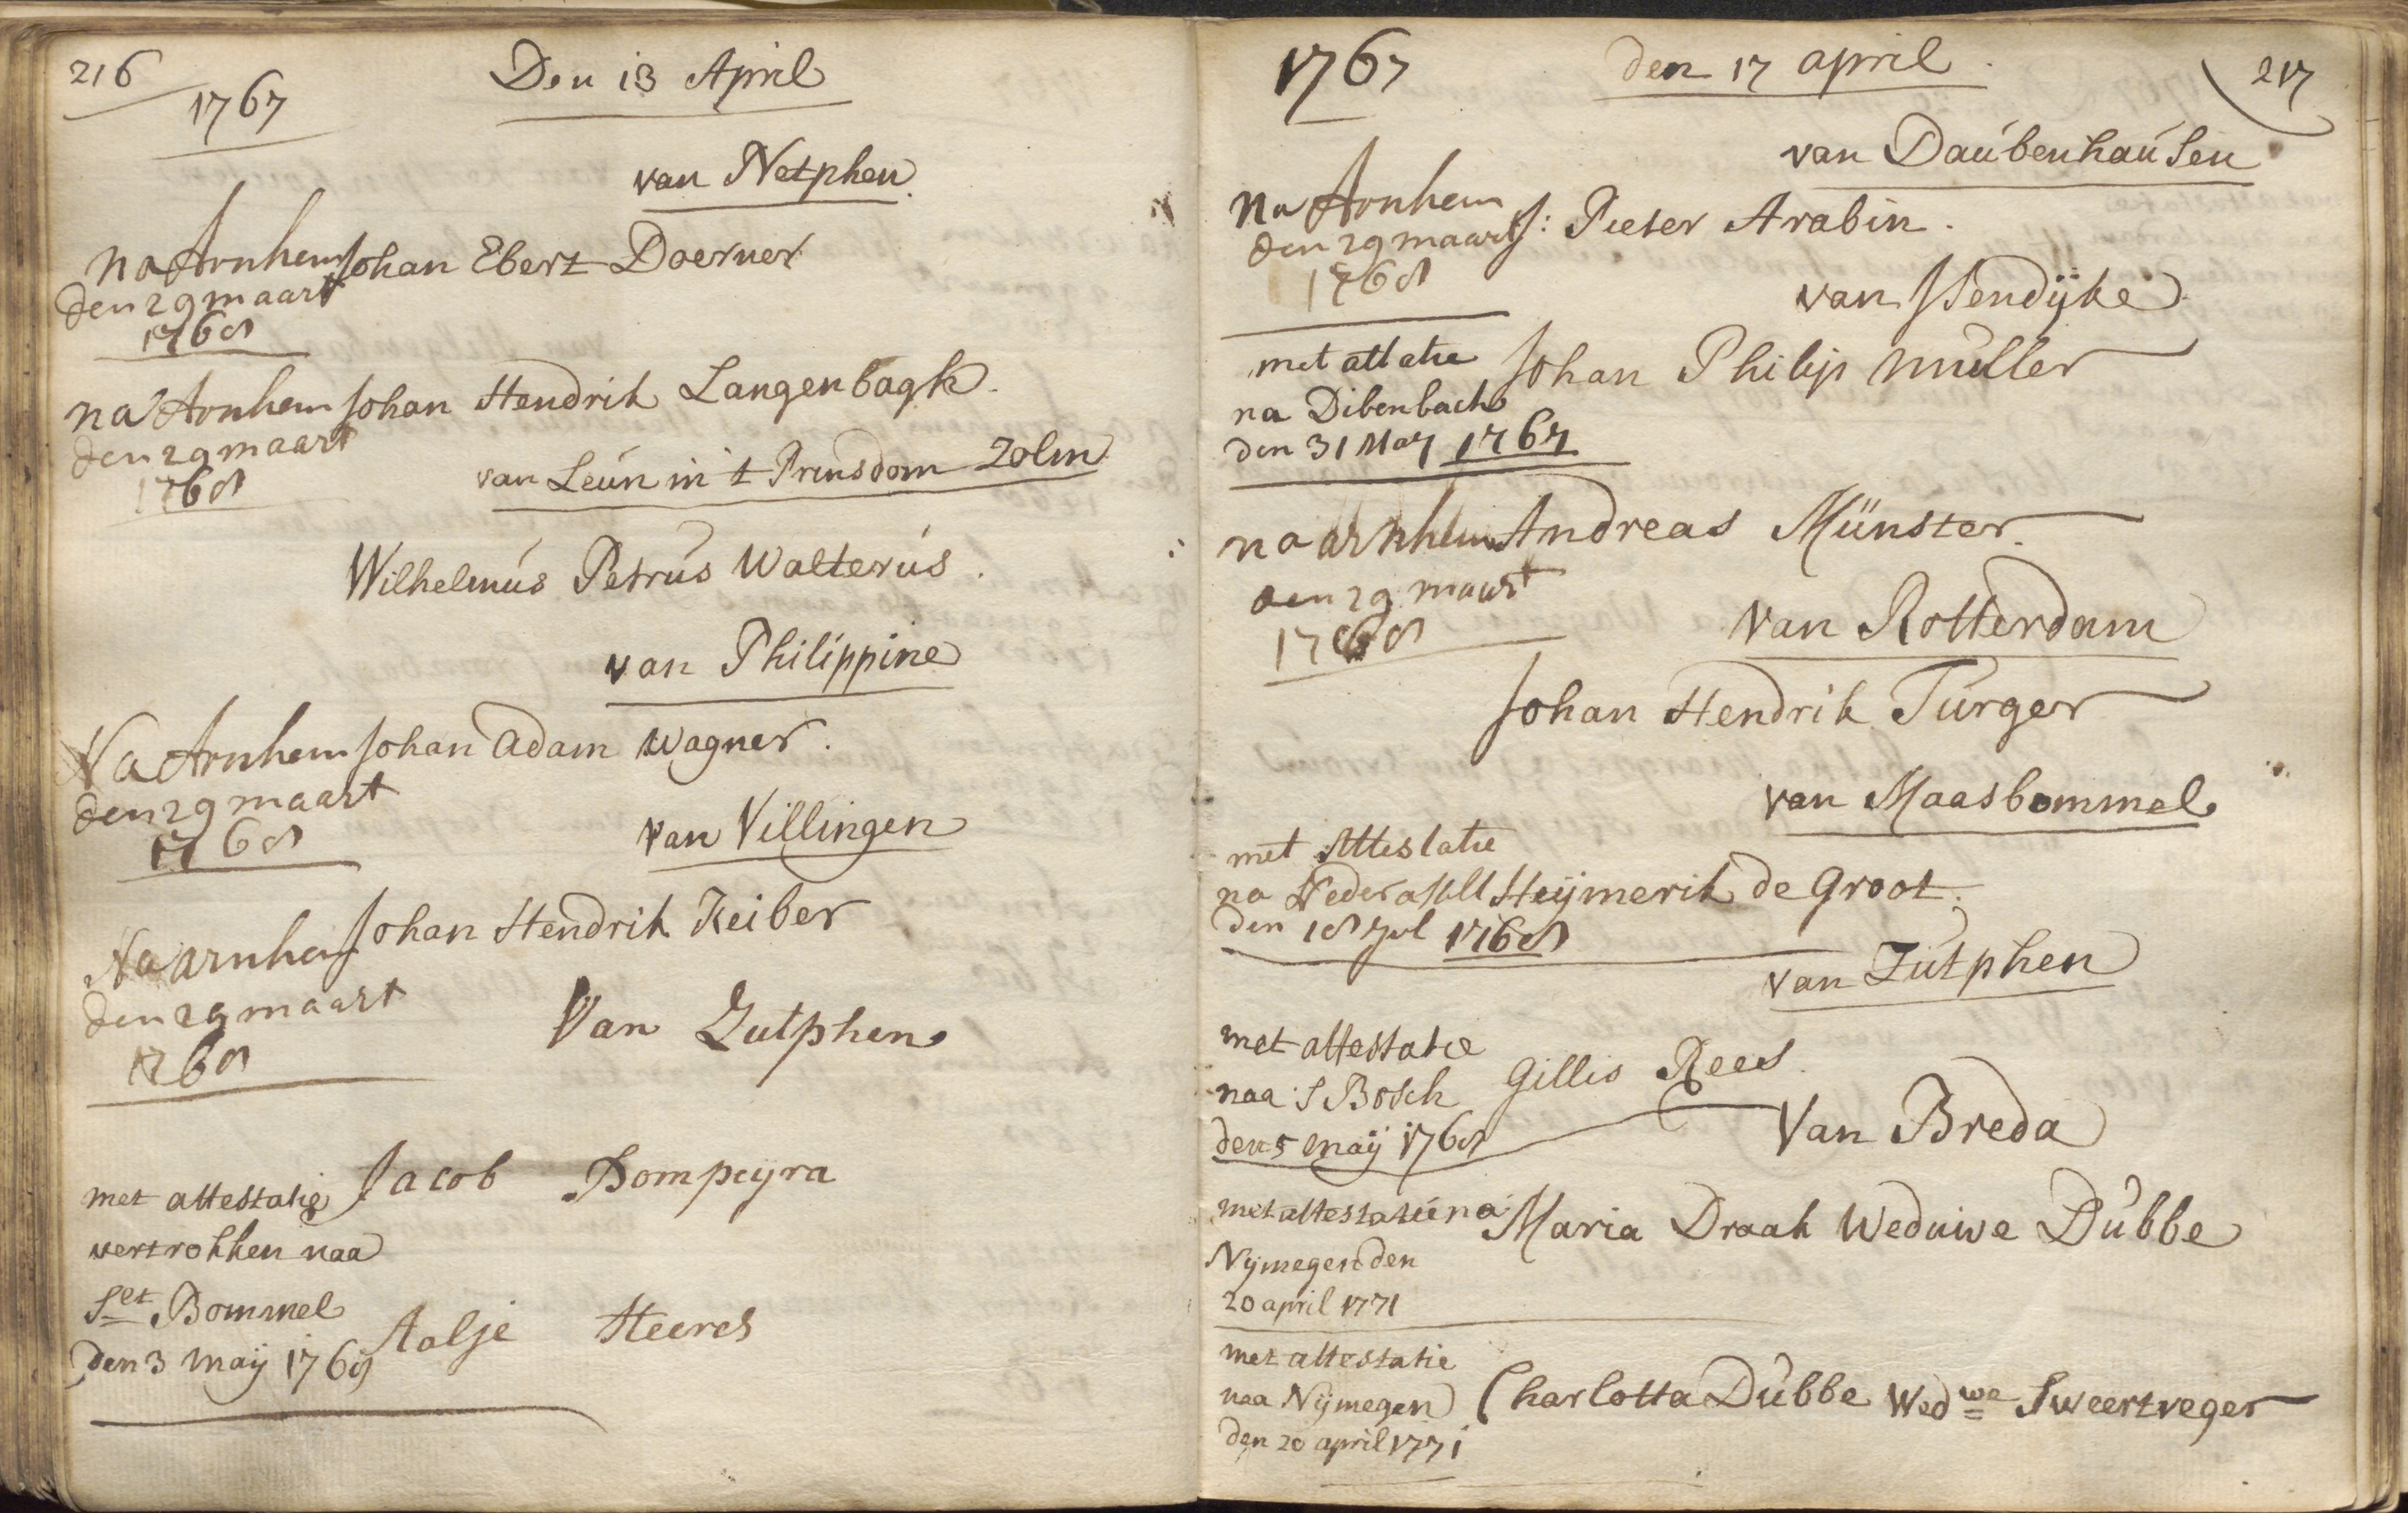 216
1767
Den 13 April
van Netphen.
na Arnhem Johan Ebert Doerner
den 29 maart
1768
na Arnhem Johan Hendrik Langenbagk.
den 29 maart
1768
van Leún in 't Prinsdom Zolm
Wilhelmús Petrús Walterús.
van Philippine
Na Arnhem Johan Adam Wagner.
den 29 maart
1768
van Villingen
Na arnhem Johan Hendrik Keiber
den 29 maart
1768
Van Zutphen
met attestatie Jacob Pompeyra
vertrokken naa
Set Bommel
den 3 maij 1769 Aalje Heeres
1767
den 17 april.
217
van Daúbenhaúsen
Na Arnhem J: Pieter Arabin.
den 29 maart
1768
van IJsendijke
met attatie Johan Philip Muller
na Dibenbach
den 31 May 1767
na arnhem Andreas Münster.
den 29 maart
1768
van Rotterdam
Johan Hendrik Túrger
van Maasbommel
met Attestatie
na Nederasselt Heijmerik de Groot.
den 18 Jul 1768
van Zútphen
met attestatie
naa S Bosch Gillis Rees.
den 5 maij 1768
Van Breda
met attestatie na Maria Draak Weduwe Dúbbe
Nijmegen den
20 april 1771
met attestatie
naa Nijmegen Charlotta Dúbbe Wedwe Sweertveger
den 20 april 1771